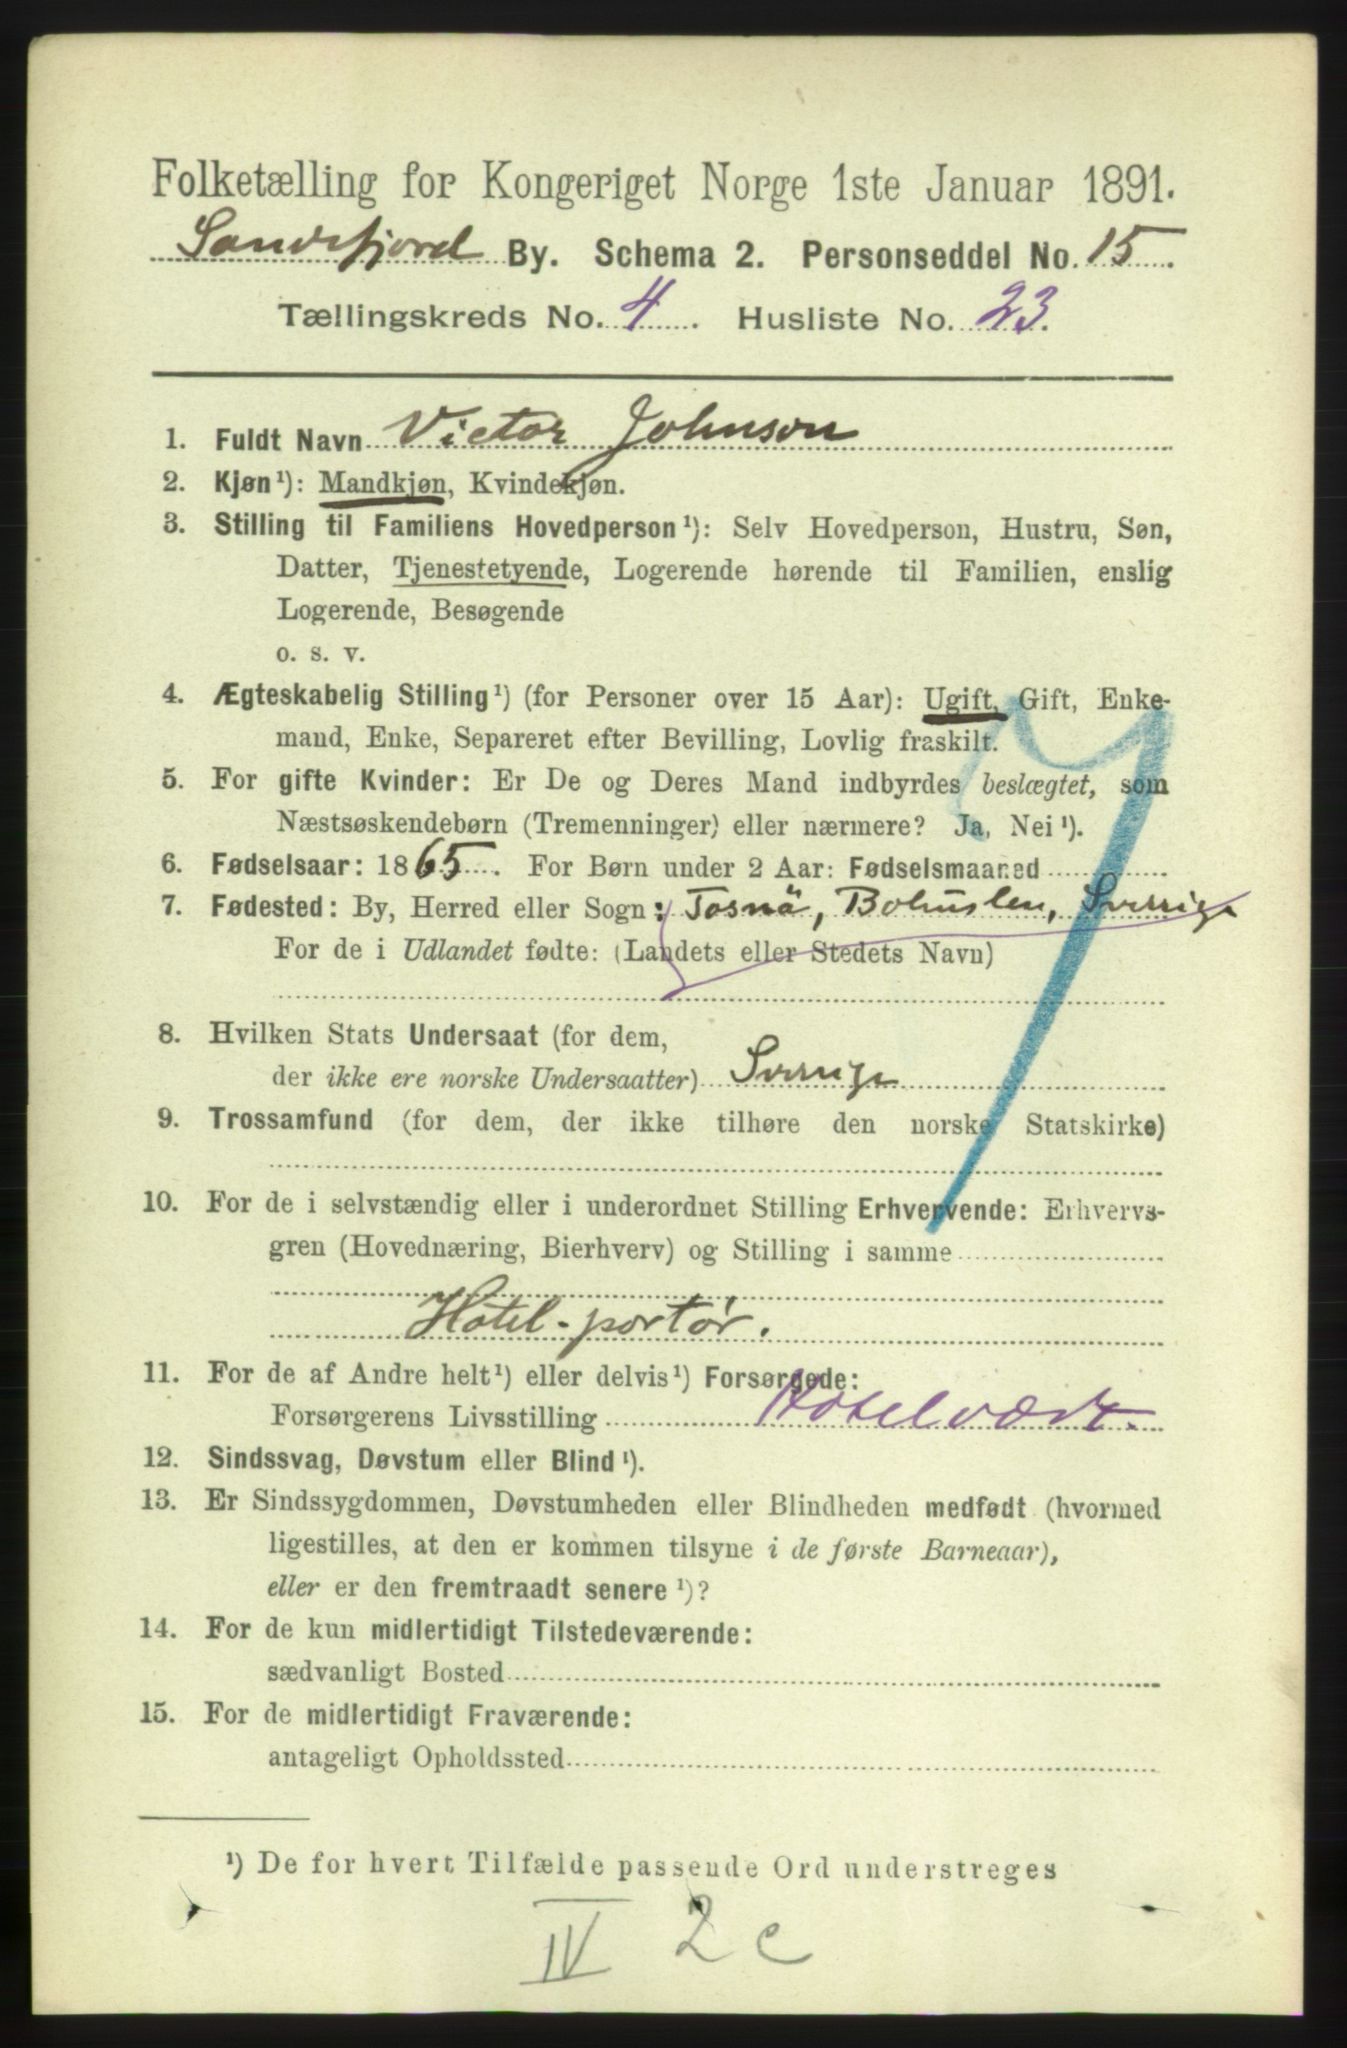 Folketælling for Kongeriget Norge 1ste Januar 1891.
Sandefjord By. Schema 2. Personseddel No. 15.
Tællingskreds No. 4. Husliste No. 23.
1. Fuldt Navn Victor Johnson
2. Kjøn¹): Mandkjøn, Kvindekjøn.
3. Stilling til Familiens Hovedperson¹): Selv Hovedperson, Hustru, Søn,
Datter, Tjenestetyende, Logerende hørende til Familien, enslig
Logerende, Besøgende
o. s. v.
4. Ægteskabelig Stilling¹) (for Personer over 15 Aar): Ugift, Gift, Enke-
mand, Enke, Separeret efter Bevilling, Lovlig fraskilt.
5. For gifte Kvinder: Er De og Deres Mand indbyrdes beslægtet, som
Næstsøskendebørn (Tremenninger) eller nærmere? Ja, Nei¹).
6. Fødselsaar: 1865. For Børn under 2 Aar: Fødselsmaaned
7. Fødested: By, Herred eller Sogn: Tosnö, Bohuslen, Sverrige
For de i Udlandet fødte: (Landets eller Stedets Navn)
8. Hvilken Stats Undersaat (for dem,
der ikke ere norske Undersaatter) Sverrige
9. Trossamfund (for dem, der ikke tilhøre den norske Statskirke)
10. For de i selvstændig eller i underordnet Stilling Erhvervende: Erhvervs-
gren (Hovednæring, Bierhverv) og Stilling i samme
Hotel-portør.
11. For de af Andre helt¹) eller delvis¹) Forsørgede:
Forsørgerens Livsstilling Hotelvært.
12. Sindssvag, Døvstum eller Blind¹).
13. Er Sindssygdommen, Døvstumheden eller Blindheden medfødt (hvormed
ligestilles, at den er kommen tilsyne i de første Barneaar),
eller er den fremtraadt senere¹)?
14. For de kun midlertidigt Tilstedeværende:
sædvanligt Bosted
15. For de midlertidigt Fraværende:
antageligt Opholdssted
¹) De for hvert Tilfælde passende Ord understreges
IV 2 c